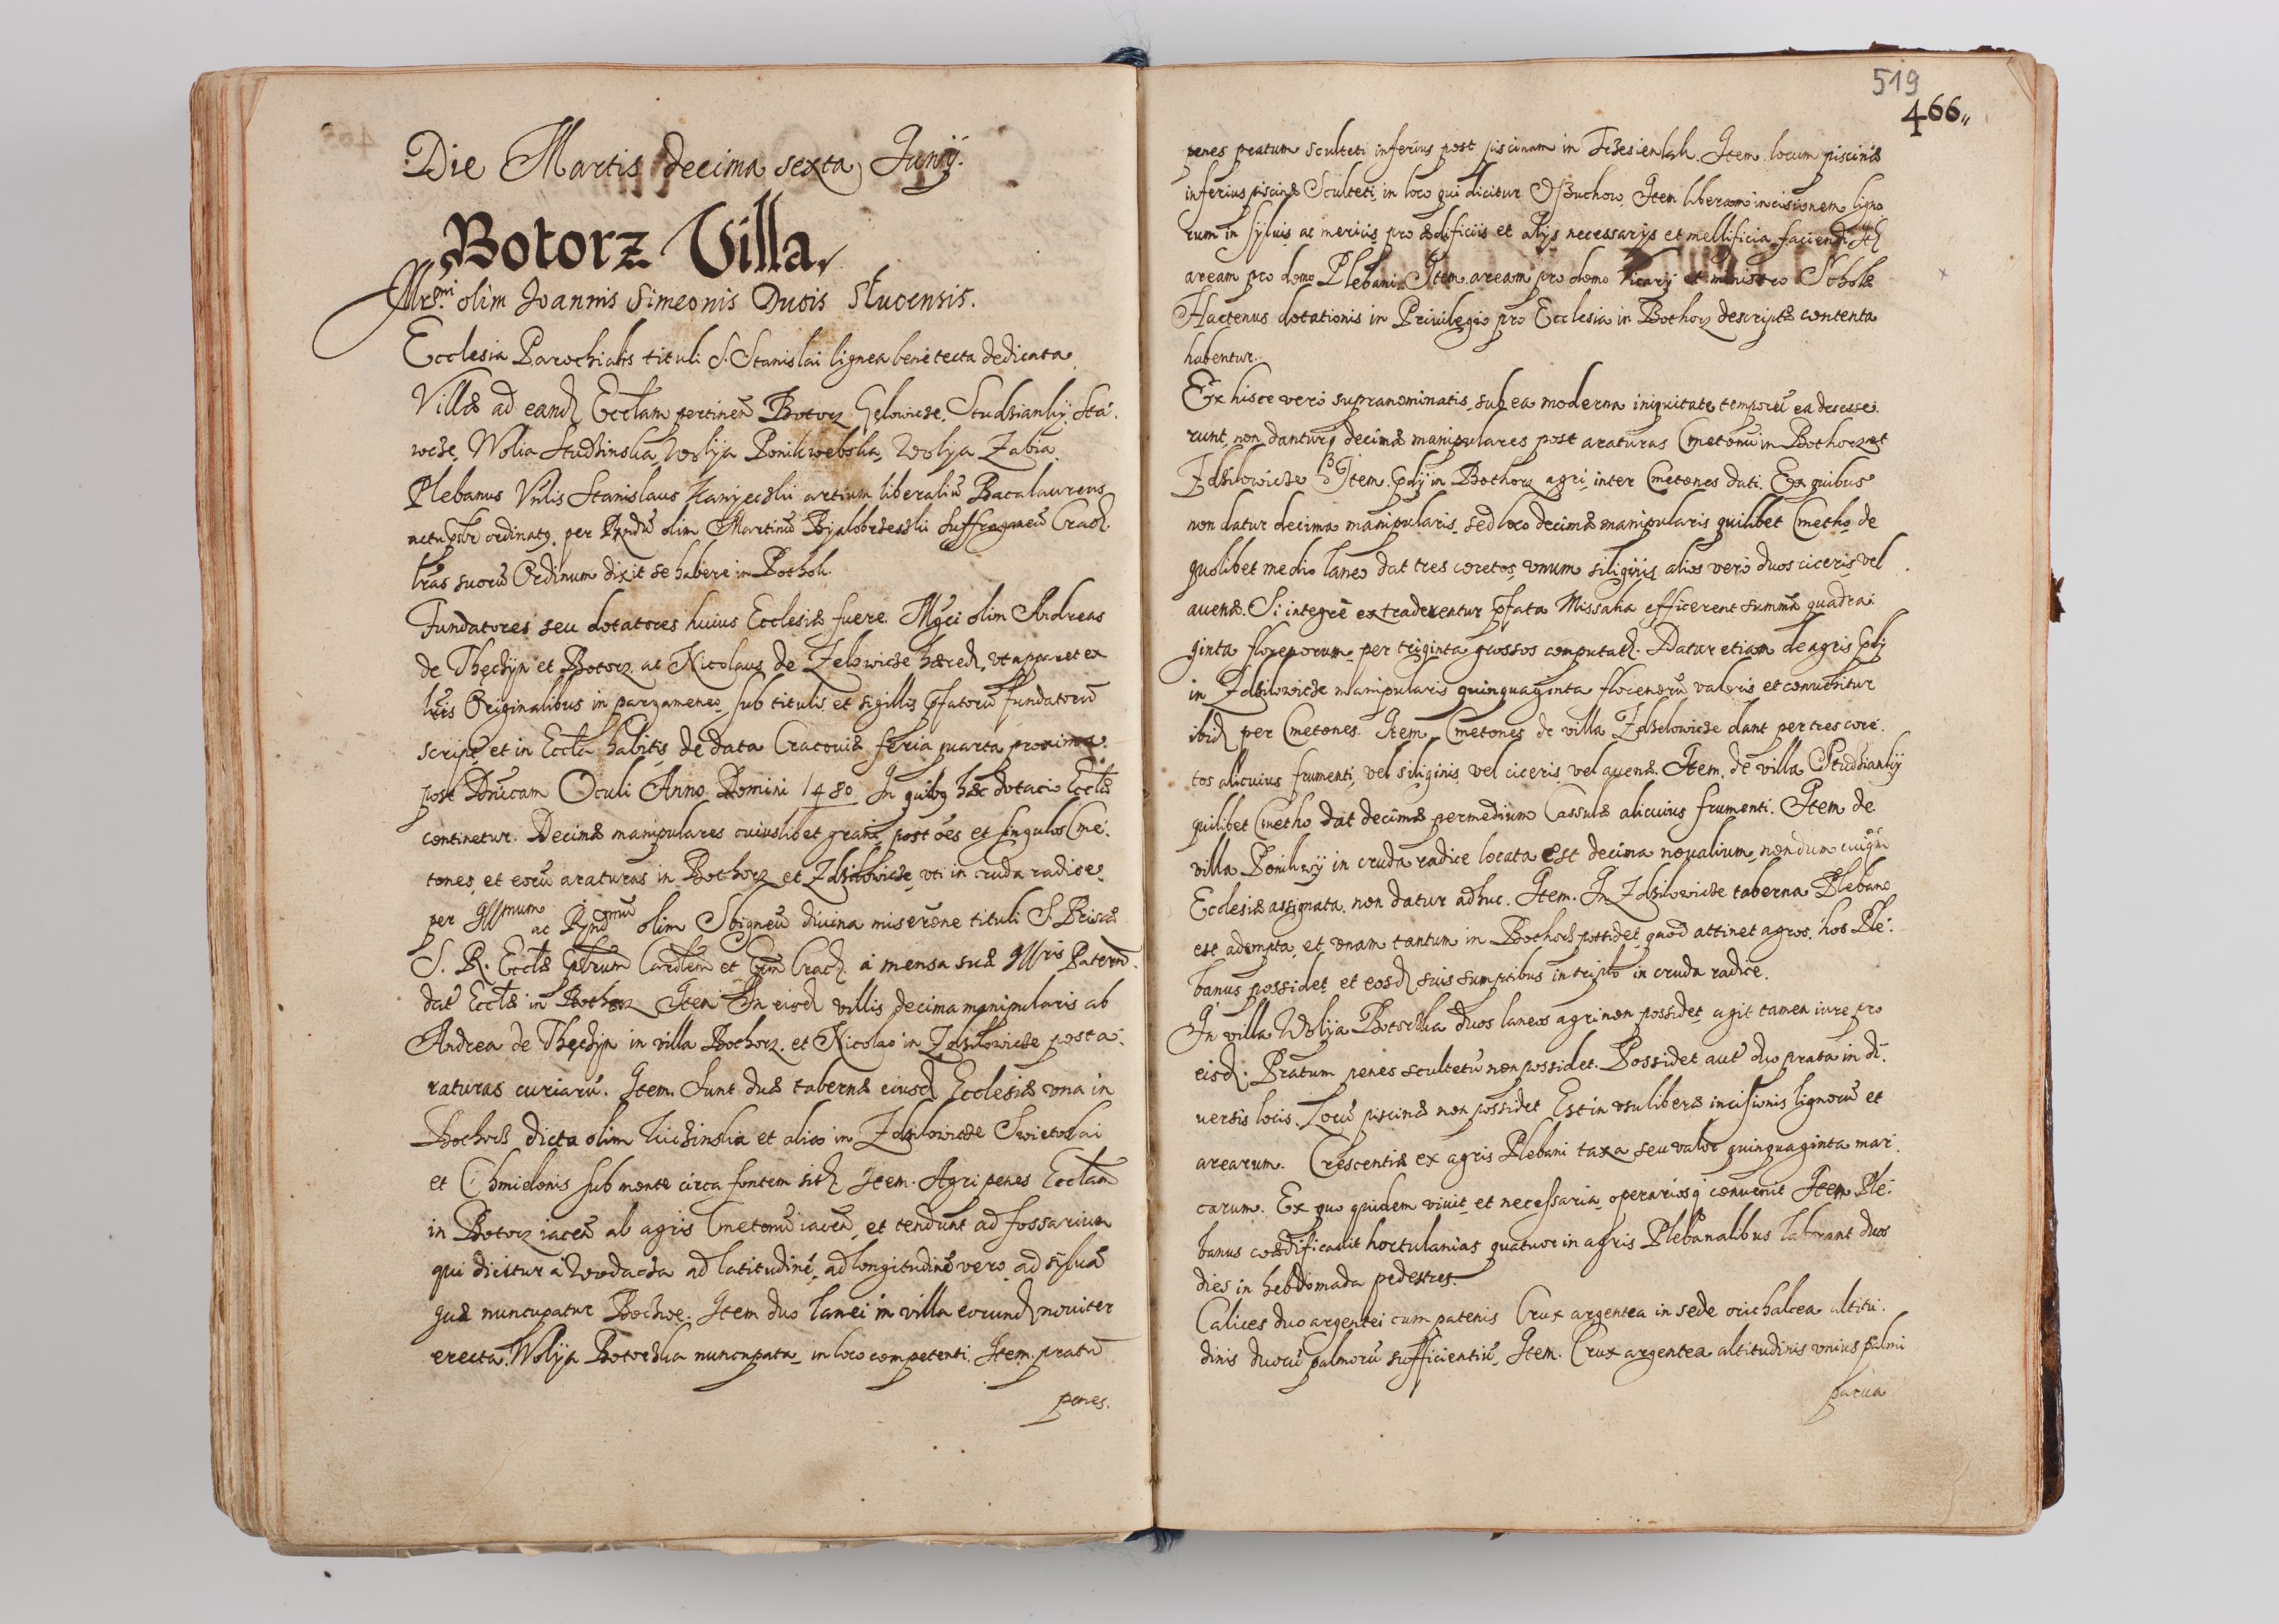 Die Martis decima sexta Junij.
Botorz Villa.
Illrmi olim Joannis Simeonis Ducis Slucensis.
Ecclesia Parochialis tituli S. Stanislai lignea bene tecta dedicata.
Villæ ad eand Ecclam pertinen Botorz Studzianky Sta.
Wolia Studzinska, Wolija Ponikwebska, Wolija Zabia.
Plebanus Vnlis Stanislaus artium liberaliu Bacalaureus
actu pbr ordinatq. per Rndu olim Martinu Bijalobrzesskii Suffraganeu Cracu
lras suoru Ordinum dixit se habere in Bothok.
Fundatores seu dotatores huius Ecclesiæ fuere. Mgci olim Andreas
de Thęchyn et Botorz ac Nicolaus de Zelowicze hæred, vt apparet ex
lris Originalibus in pargameneo sub titulis et sigillis pfatoru fundatoru
script et in Eccla habitis de data Cracouiæ feria quarta proxima.
post Dnicam Oculi Anno Domini 1480 In quibq hæc dotacio Ecclæ
continetur. Decimæ manipulares cuiuslibet grani post oes et singulos Cme.
tones, et eoru araturas in Bothorz et Zdzilowicze, vti in cruda radice.
per Illmum ac Rndmu olim Sbigneu diuina miserone tituli S. Priscæ
S. R. Ecclæ pbrum Cardlem et Epm Crac. a mensa suæ Illris Patern.
dat Ecclæ in Bothorz Item In eisd villis decima manipularis ab
Andrea de Thęchyn in villa Bothorz. et Nicolao in Zdzilowicze post a.
raturas curiaru. Item. Sunt duæ tabernæ eiusd Ecclesiæ vna in
Bothorz dicta olim et alia in Zdzilowicze Swietoslai
et Chmielonis sub monte circa fontem sit Item. Agri penes Ecclam
in Botorz iacen ab agris Cmetonu iacen, et tendunt ad fossarium
qui dicitur a ad latitudine, ad longitudine vero ad syluā
quæ nuncupatur Item duo lanei in villa eorund nouiter
erecta. Wolija Botorzka nuncupata, in loco competenti. Item. pratu
penes.
519
466
penes pratum sculteti inferius post piscinam in Item. locum piscinæ
inferius piscinæ Sculteti in loco qui dicitur Item liberam incisionem ligno
rum in syluis ac mericis pro ædificiis et alijs necessarijs et mellificia faciendi It
aream pro domo Plebani Item aream pro domo Vicarij et ministro Scholæ
Hactenus dotationis in Priuilegio pro Ecclesia in Bothorz descriptæ contenta
habentur.
Ex hisce vero supranominatis sub ea moderna iniquitate temporu ea decesse.
runt, non dantur decimæ manipulares post araturas Cmetonu in Bothorz et
Zdzilowicze Item pdij in Bothorz agri inter Cmetones dati. Ex quibus
non datur decima manipularis, sed loco decimæ manipularis quilibet Cmetho de
quolibet medio laneo dat tres coretos, vnum siliginis alios vero duos ciceris vel
auenæ. Si integre extraderentur pfata Missalia efficerent summa quadra.
ginta florenorum per triginta grossos computat. Datur etiam de agris pdij
in Zdzilowicze manipularis quinquaginta florenoru valoris et conuehitur
ibid per Cmetones. Item Cmetones de villa Zdzelowicze dant per tres core.
tos alicuius frumenti, vel siliginis, vel ciceris, vel auenæ. Item. de villa Studzianky
quilibet Cmetho dat decimæ permedium Cassulæ alicuius frumenti. Item de
villa Ponikwij in cruda radice locata est decima noualium, nondum
Ecclesiæ assignata, non datur adhuc. Item. In Zdzilowicze taberna Plebano
est adempta, et vnam tantum in Bothorz possidet, quod attinet agros, hos Ple.
banus possidet et eosd suis sumptibus in triplo in cruda radice.
In villa Wolija Botorzka duos laneos agri non possidet, agit tamen iure pro
eisd. Pratum penes scultetu non possidet. Possidet aut duo prata in di.
uersis locis. Locu piscinæ non possidet Est in vsu liberæ incisionis lignoru et
arearum. Crescentiæ ex agris Plebani taxa seu valor quinquaginta mar.
carum. Ex quo quidem viuit et necessaria, operariosq conuenit Item Ple.
banus coædificauit hortulanias quatuor in agris Plebanalibus laborant duos
dies in hebdomada pedestres.
Calices duo argentei cum patenis Crux argentea in sede orichalcea altitu.
dinis duoru palmoru sufficientiu, Item. Crux argentea altitudinis vnius palmi
parua